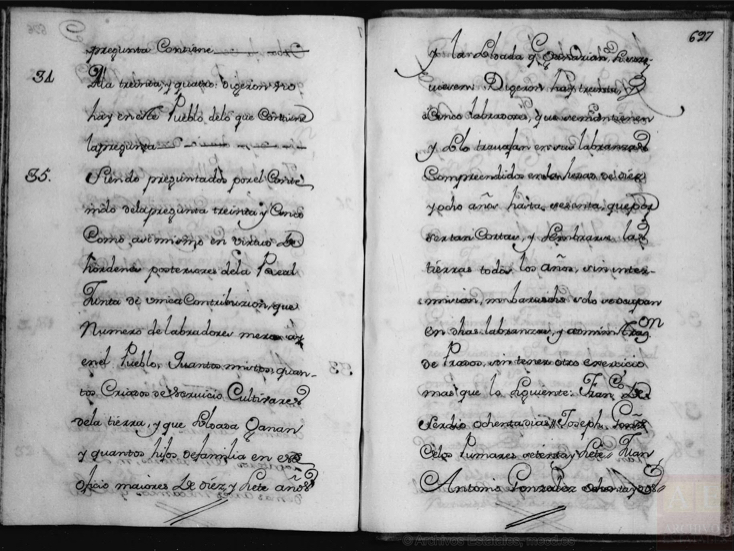 pregunta Contiene
34 A la treinta, y quatro: digeron no
hay en este Pueblo, delo que Contiene
la pregunta
35. Siendo preguntados por el Conte
nido dela pregunta treinta y Cinco
Como, asimismo en virtud de
hordenes posteriores dela Real
Junta de unica Contribuzion, que
Numero de labradores meros ay
en el Pueblo, Quantos mistos, quan-
tos Criados de servicio Cultivares
dela tierra, y que Soldada Ganan
y quantos hijos de familia en este
oficio maiores De diez y siete años
627
y la Soldada q Ganarian,
Digeron hay treinta, y
Cinco labradores, que se mantienen
y solo travajan en sus labranzas
Comprendidos en las hesas de diez
y ocho años hasta sesenta; que por
ser tan Cortas, y sembrarse las
tierras todos los años, sin inter-
mision, ni barvecho solo se ocupan
en dhas labranzas, y
de Prados, sin tener otro exercicio
mas que lo siguiente: Franco. De
Serdio ochenta dias; Joseph
Pumares setenta y siete; Juan
Antonio Gonzalez ochenta y dos
© Archivos Estatales, mecd.es